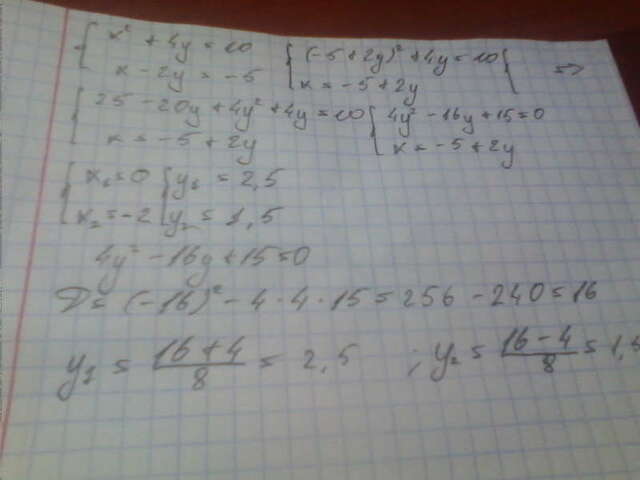 { x² + 4y = 10 { (-5 + 2y)² + 4y = 10 { ⇒
x - 2y = -5 x = -5 + 2y
{ 25 - 20y + 4y² + 4y = 10 { 4y² - 16y + 15 = 0
x = -5 + 2y x = -5 + 2y
{ x₁ = 0 { y₁ = 2,5
x₂ = -2 y₂ = 1,5
4y² - 16y + 15 = 0
D = (-16)² - 4 · 4 · 15 = 256 - 240 = 16
y₁ = (16 + 4)/8 = 2,5 ; y₂ = (16 - 4)/8 = 1,5